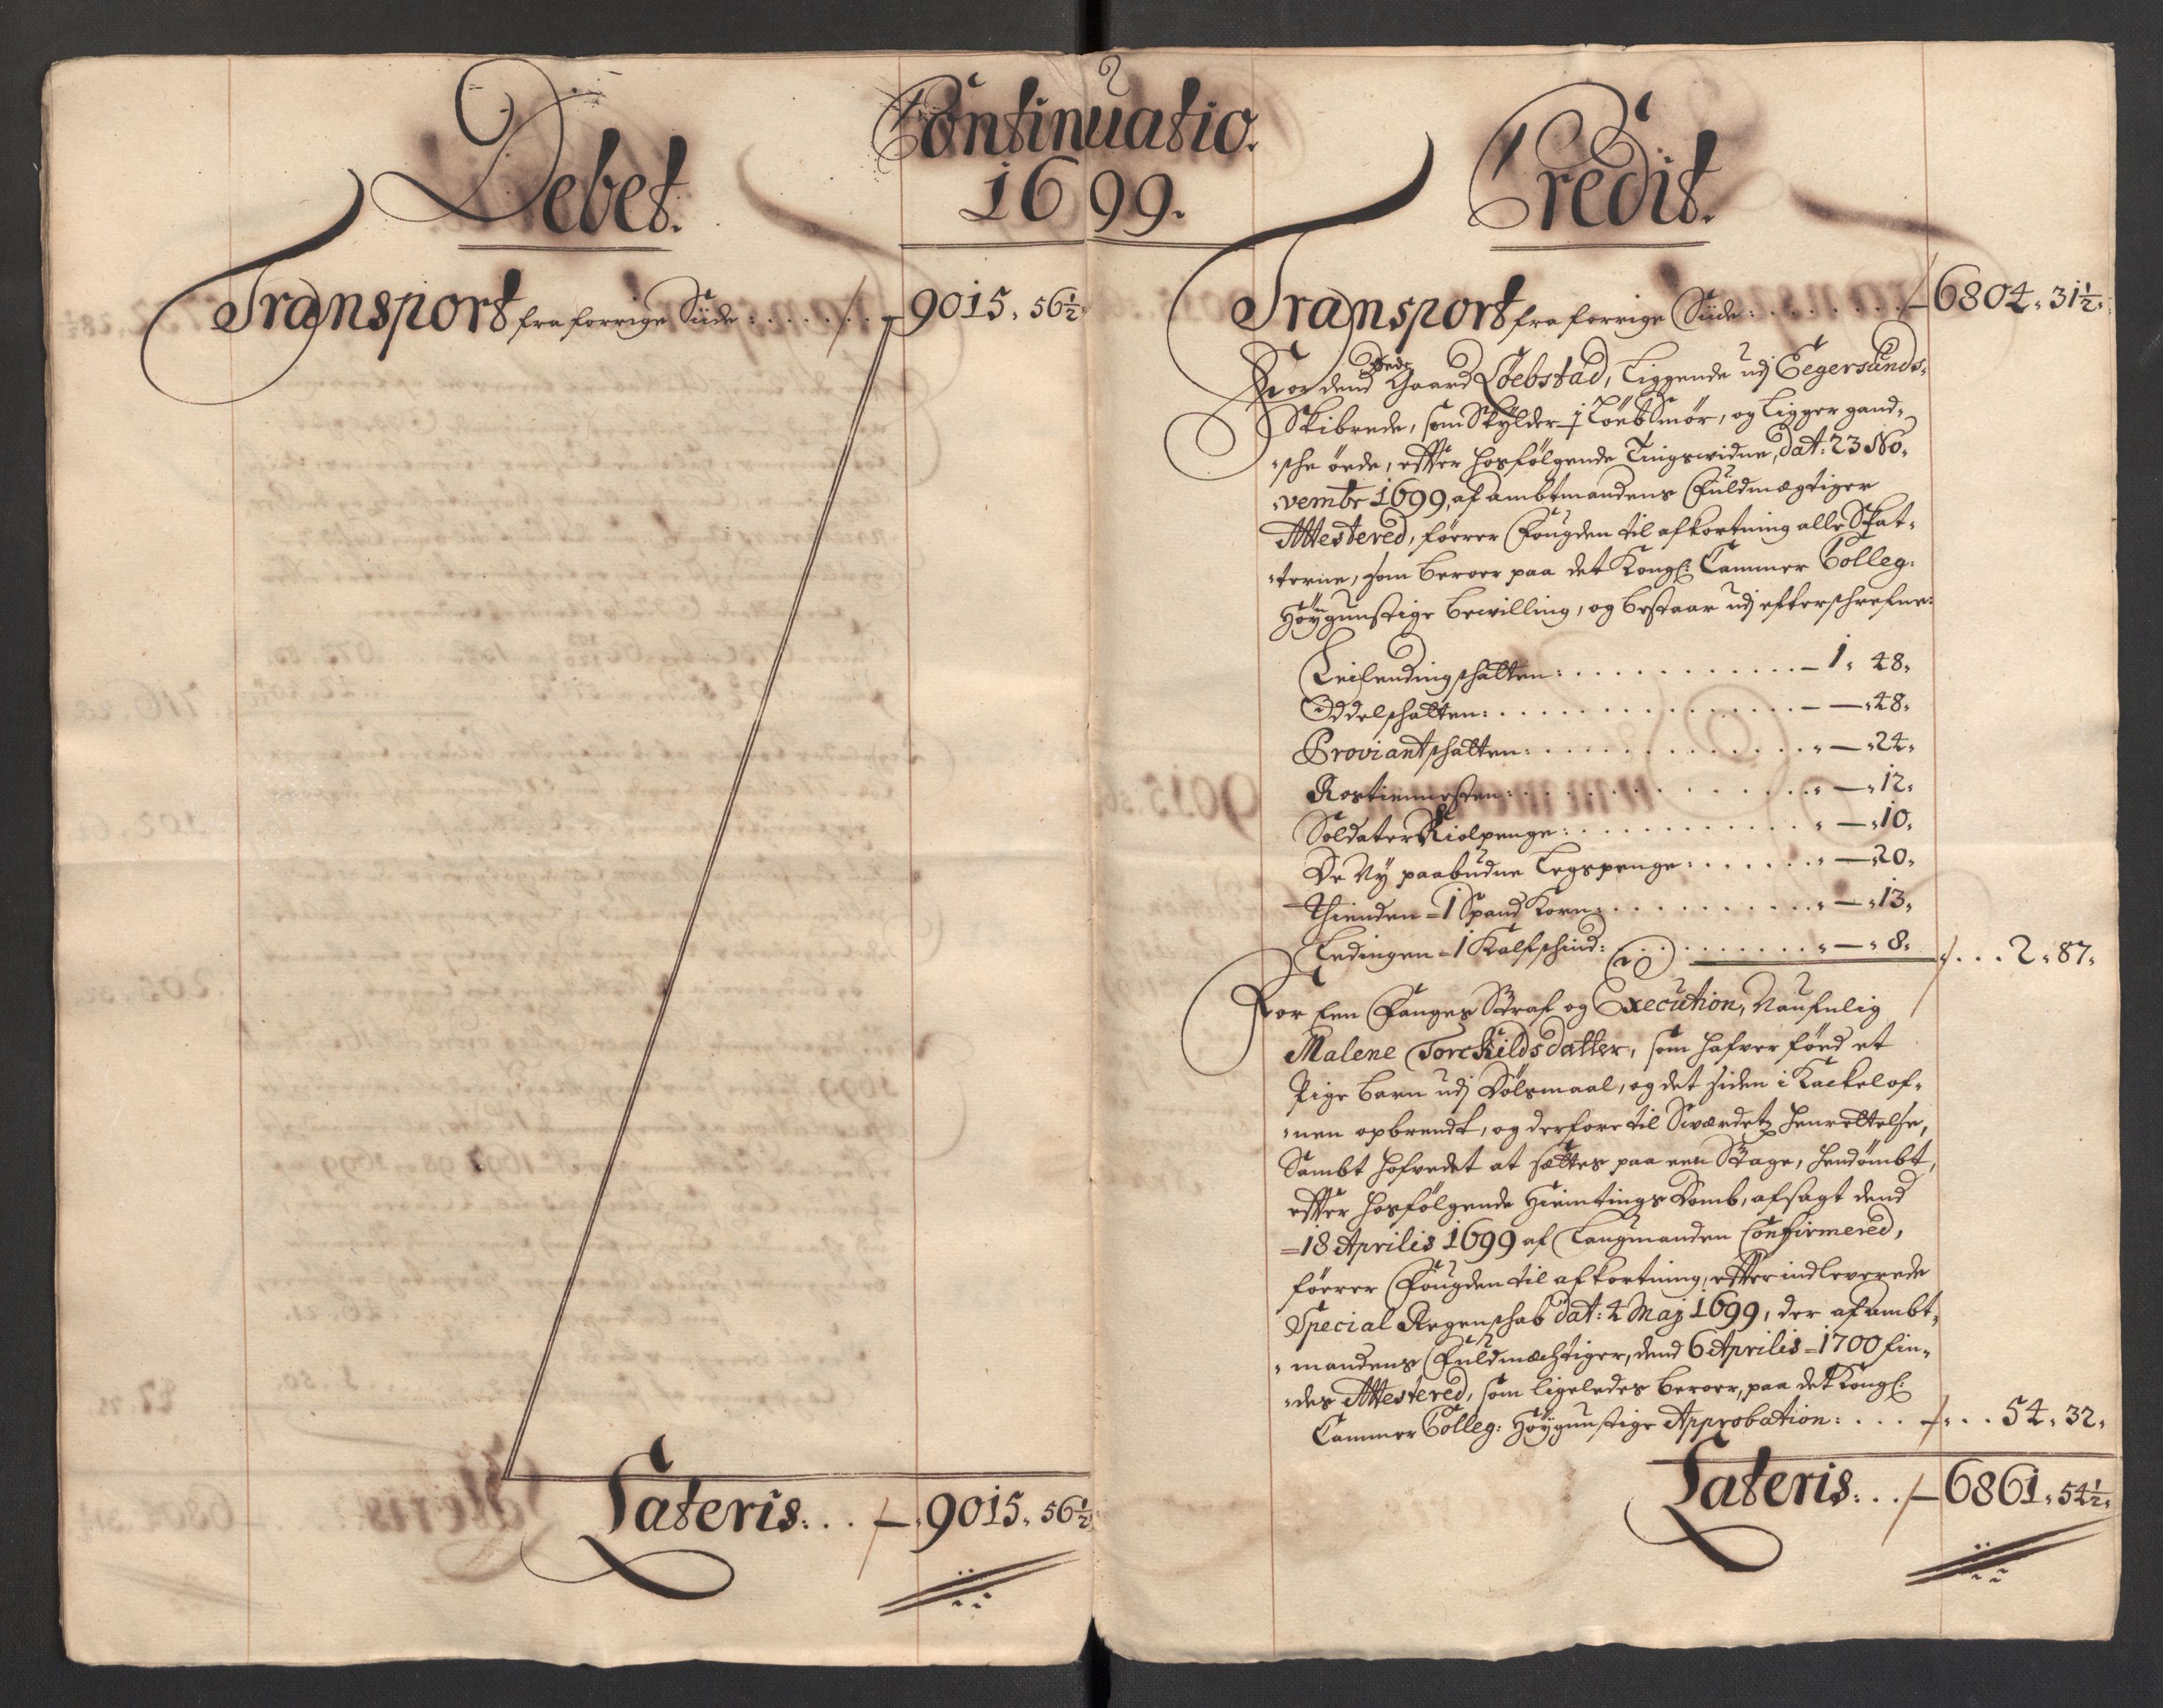 Continuatio.
1699.
Debet.
Transport fra forrige Siide: . . . . . . . – 9015. 56½
Lateris: . . . – 9015. 56½
Credit.
Transport fra forrige Siide: . . . . . . . – 6804. 31½.
For dend Gaard Løebstad, liggende udj Eegersunds-
Skibrede, som Skylder ½ Løeb Smør, og ligger gand-
sche øede, effter hosfølgende Tingswidne, dat: 23 No-
vembr 1699, af ambtmandens Fuldmægtiger
Attestered, føerer Fougden til afkortning alle Skat-
terne, som beroer paa det Kongl: Cammer Colleg:
Høygunstige bevilling, og bestaar udj effterschrefne:
Leilendingschatten: . . . . . . – 1. 48.
Oddelschatten: . . . . . . – – 48.
Proviantschatten: . . . . . . – 24.
Rostienesten: . . . . . . – 12.
Soldater Kiolpenge: . . . . . . – 10.
De Ny paabudne Legspenge: . . . . . . – 20.
Thienden = 1 Spand Korn: . . . . . . – 13.
Ledingen = 1 Kalfschind: . . . . . . – 8. . . . 2. 87.
For Een Fanges Straf og Execution, Naufnlig
Malene Torckildsdatter, som hafver fød et
Pige barn udj Dølsmaal, og det siden i Kackelof-
nen opbrendt, og derfore til Sværdetz henrettelse,
Sambt hofvedet at sættes paa een Stage, hendømbt,
effter hosfølgende Hiemtings Domb, afsagt dend
18 Aprilis 1699 af Laugmanden Confirmered,
føerer Fougden til afkortning, effter indleverede
Special Regenschab dat: 4 Maj 1699, der af ambt-
mandens Fuldmechtiger, dend 6 Aprilis 1700 fin-
des Attestered, som ligeledes beroer, paa det Kongl:
Cammer Colleg: Høygunstige Approbation: . . . . . . 54. 32.
Lateris: . . – 6861. 54½.